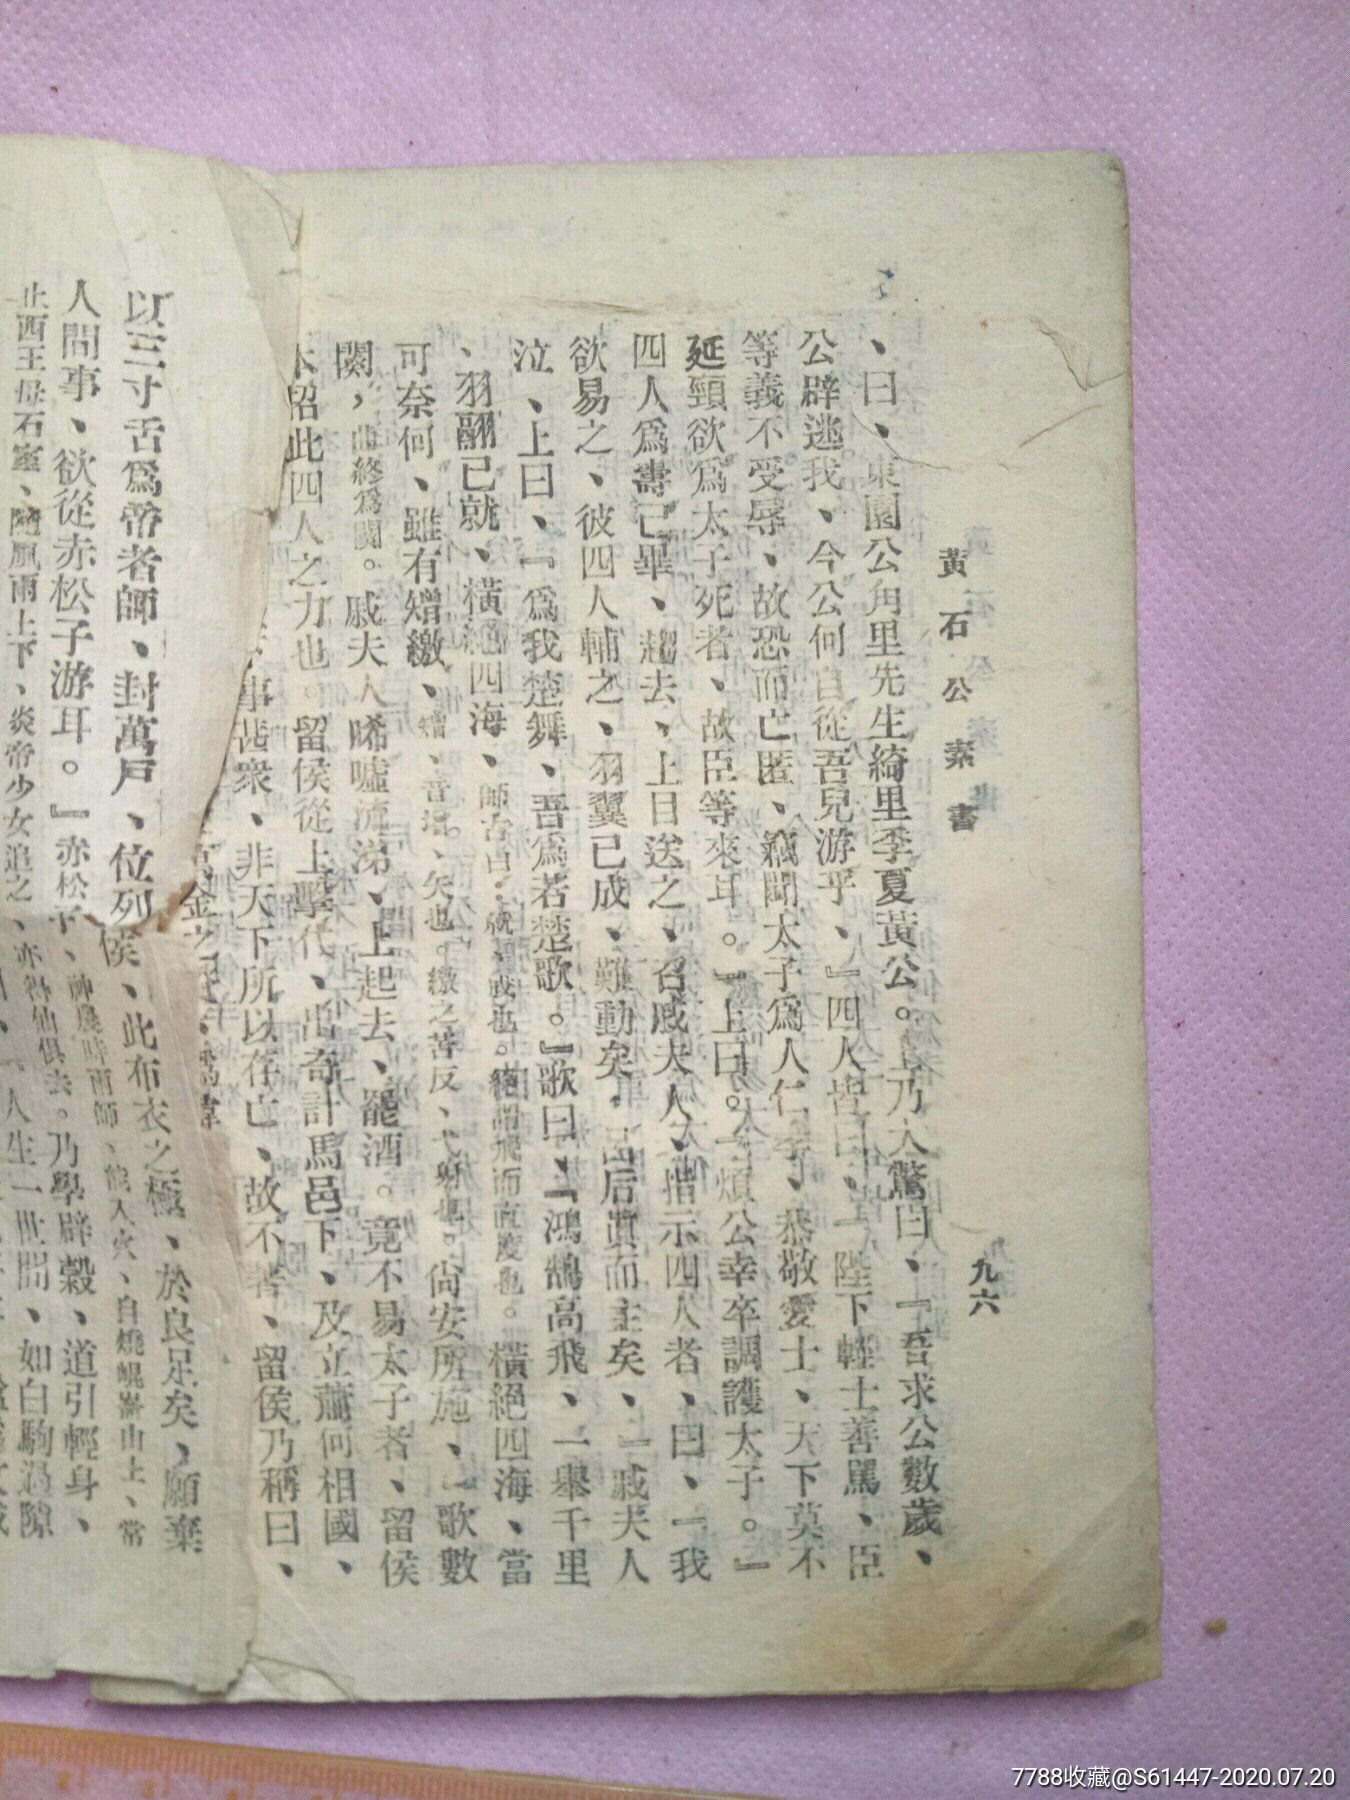 黃石公素書
九六
、曰、東園公角里先生綺里季夏黃公。上乃大驚曰、『吾求公數歲、
公辟逃我、今公何自從吾兒游乎、』四人皆曰、『陛下輕士善罵、臣
等義不受辱、故恐而亡匿、竊聞太子爲人仁孝、恭敬愛士、天下莫不
延頸欲爲太子死者、故臣等來耳。』上曰。『煩公幸卒調護太子。』
四人爲壽已畢、趨去、上目送之、召戚夫人、指示四人者、曰、『我
欲易之、彼四人輔之、羽翼已成、難動矣、呂后眞而主矣、』戚夫人
泣、上曰、『爲我楚舞、吾爲若楚歌。』歌曰、『鴻鵠高飛、一舉千里
、羽翮已就、橫絕四海、師古曰、就、成也。絕謂飛而直度也。橫絕四海、當
可奈何、雖有矰繳、矰、音增。矢也。繳之苦反、弋射也。尙安所施、』歌數
闋，曲終爲闋。戚夫人唏噓流涕、上起去、罷酒。竟不易太子者、留侯
本招此四人之力也。留侯從上擊代、出奇計馬邑下、及立蕭何相國、
事甚衆、非天下所以存亡、故不著、留侯乃稱曰、
金之
以三寸舌爲帝者師、封萬戶、位列侯、此布衣之極、於良足矣、願棄
人間事、欲從赤松子游耳。』赤松子、神農時雨師、能入火、自燒崐崙山上、常
止西王母石室、隨風雨上下、炎帝少女追之、亦得仙俱去。乃學辟穀、道引輕身、
人生一世間、如白駒過隙
7788收藏@S61447-2020.07.20